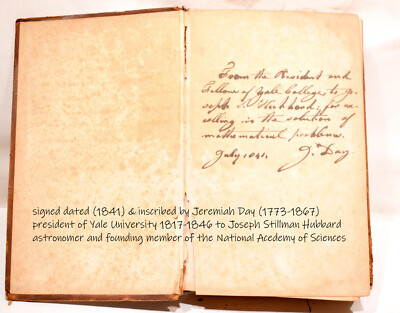 From the President and
Fellows of Yale College to Jo-
seph S. Hubbard; for ex-
celling in the solution of
mathematical problems.
July 1841. J. Day
signed dated (1841) & inscribed by Jeremiah Day (1773-1867)
president of Yale University 1817-1846 to Joseph Stillman Hubbard
astronomer and founding member of the National Acedemy of Sciences